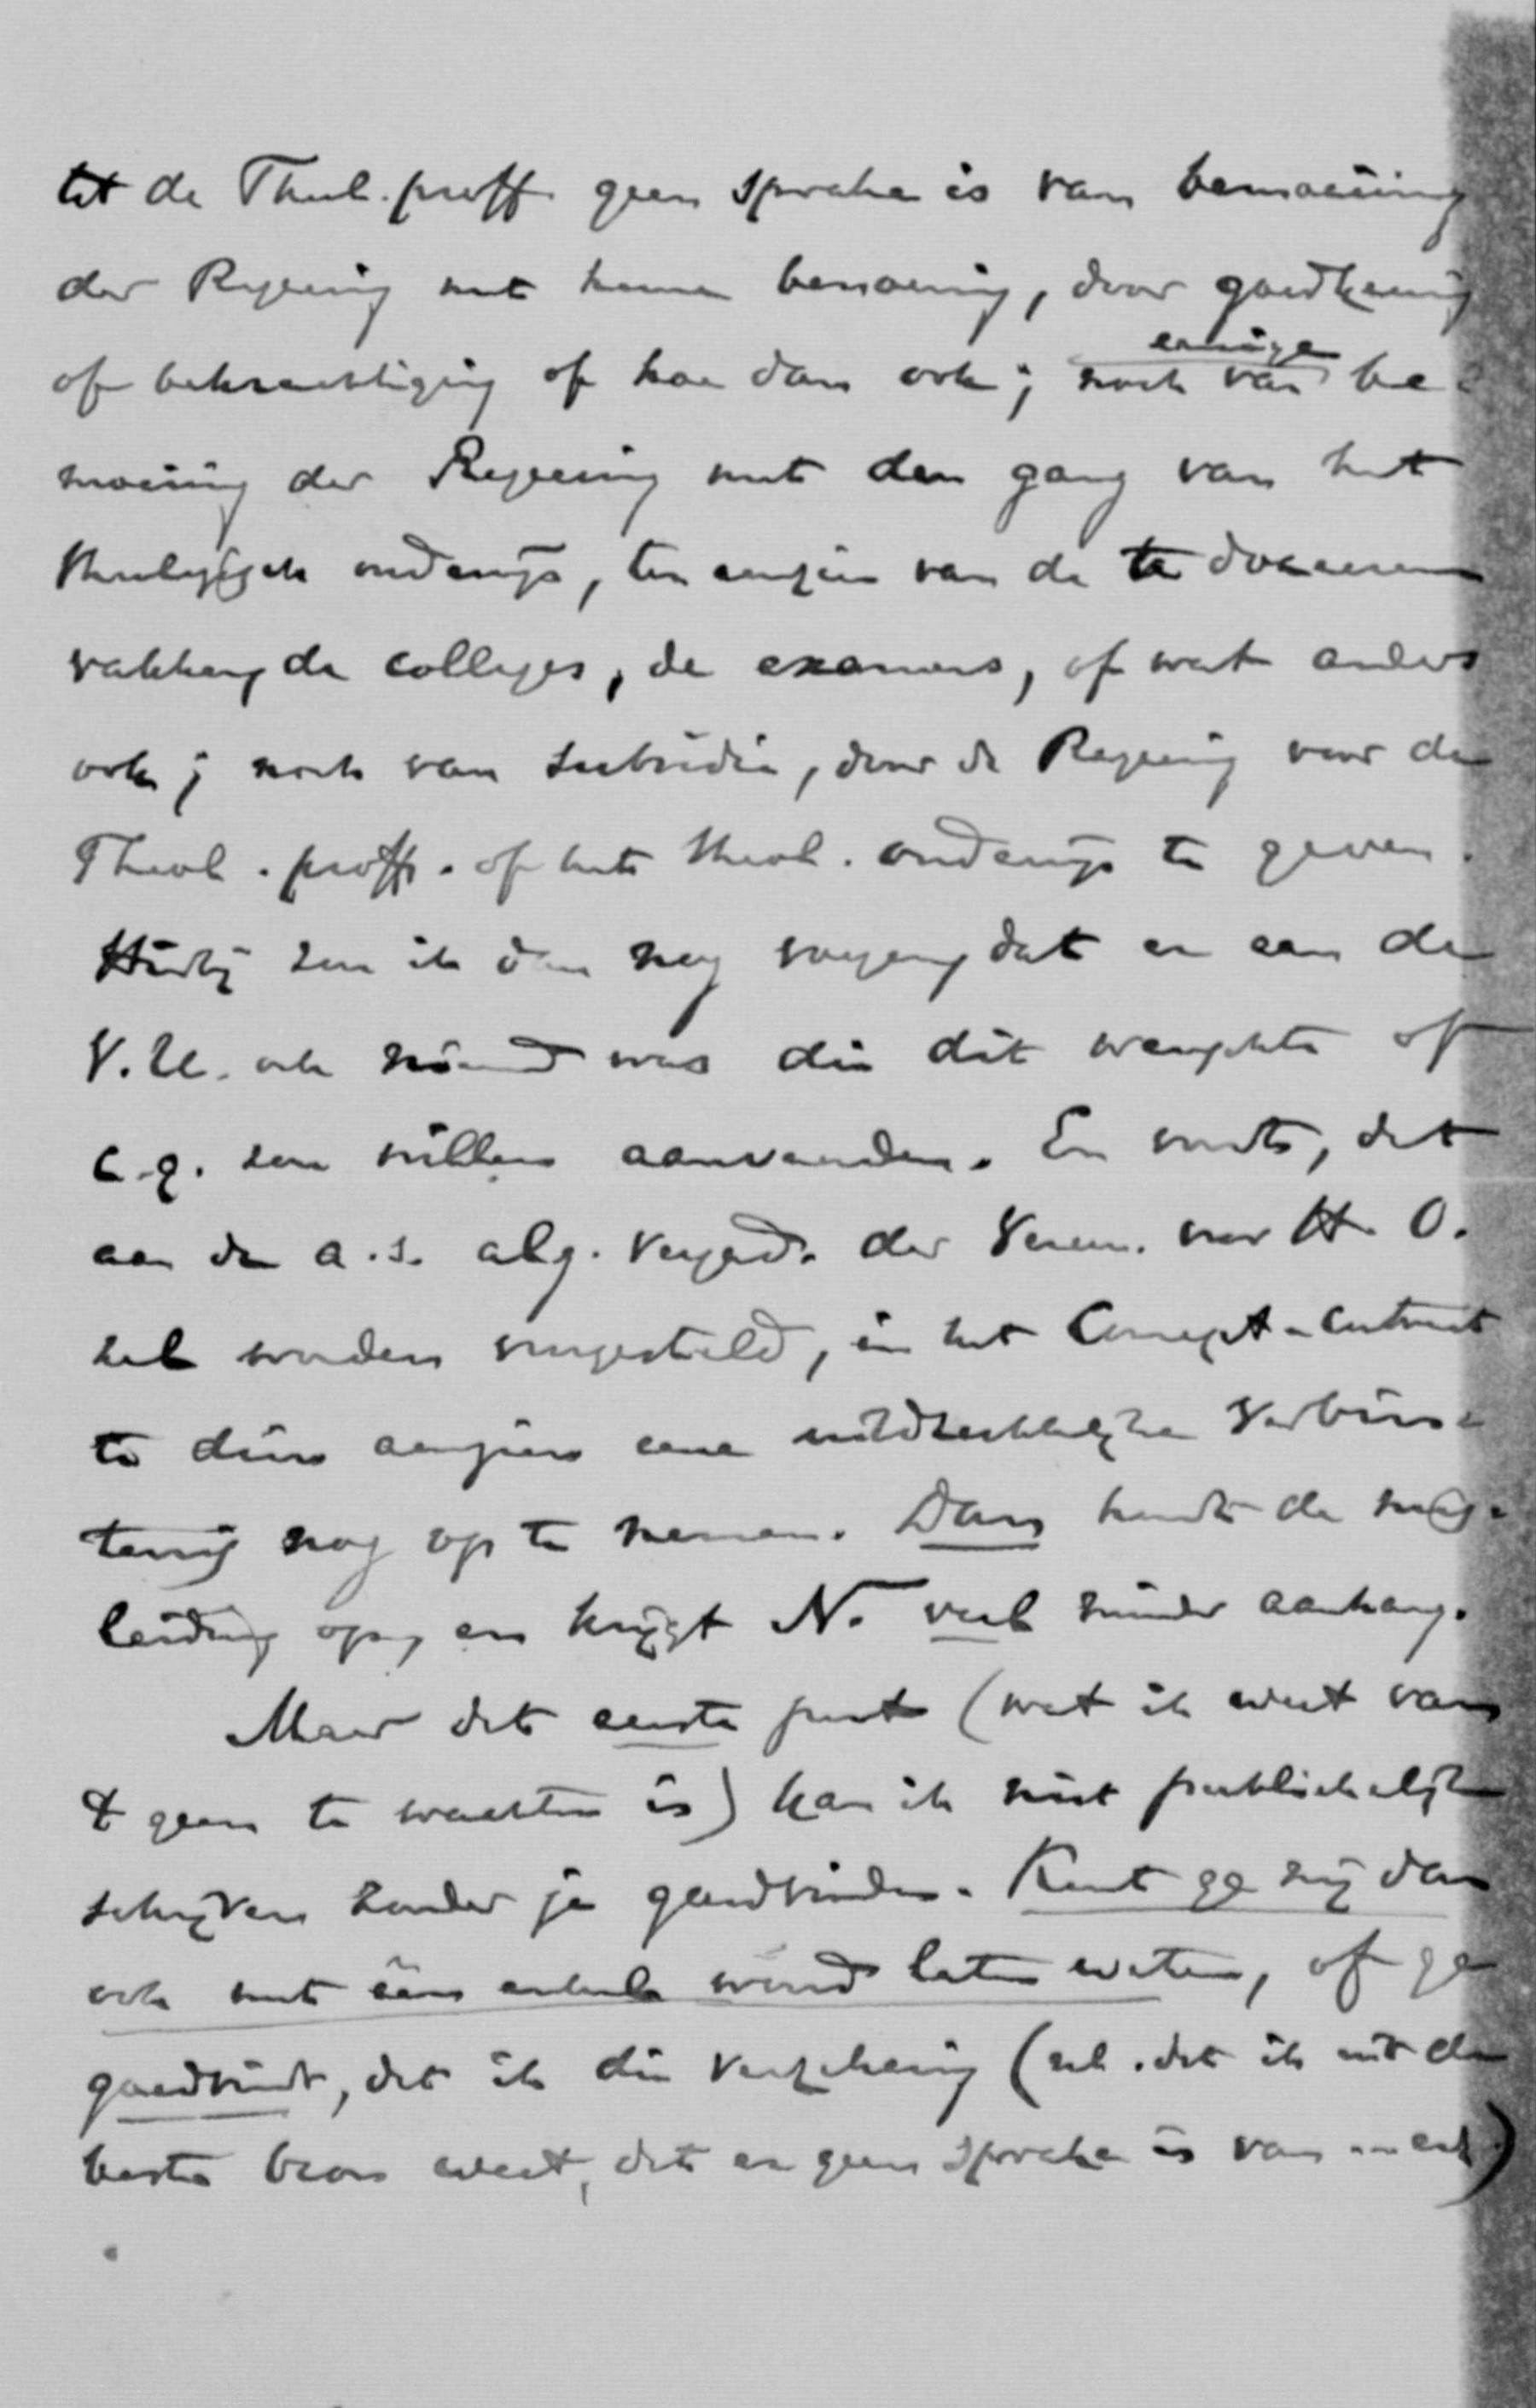 tot de Theol. proff. geen sprake is van bemoeiing
der Regeering met hunne benoeming, door goedkeuring
of bekrachtiging of hoe dan ook; noch van eenige be-
moeiing der Regeering met den gang van het
theologisch onderwijs, ten aanzien van de te doceeren
vakken, de colleges, de examens, of wat anders
ook; noch van subsidie, door de Regeering voor de
Theol. proffs. of het theol. onderwijs te geven.
Hierbij zou ik dan nog voegen, dat er aan de
V.U. ook niemand was die dit wenschte of
c.q. zou willen aanvaarden. En voorts, dat
aan de a.s. alg. vergad. der Vereen. voor H. O.
zal worden voorgesteld, in het Concept-contract
te dien aanzien eene uitdrukkelijke verbin-
tenis nog op te nemen. Dan houdt de mis-
leiding op, en krijgt N. veel minder aanhang.
Maar dat eerste punt (wat ik weet van
geen te wachten is) kan ik niet publiekelijk
schrijven zonder je goedvinden. Kunt ge mij dan
ook met één enkel woord laten weten, of ge
goedvindt, dat ik die verzekering (nl. dat ik uit de
beste bron weet, dat er geen sprake is van ... enz.)